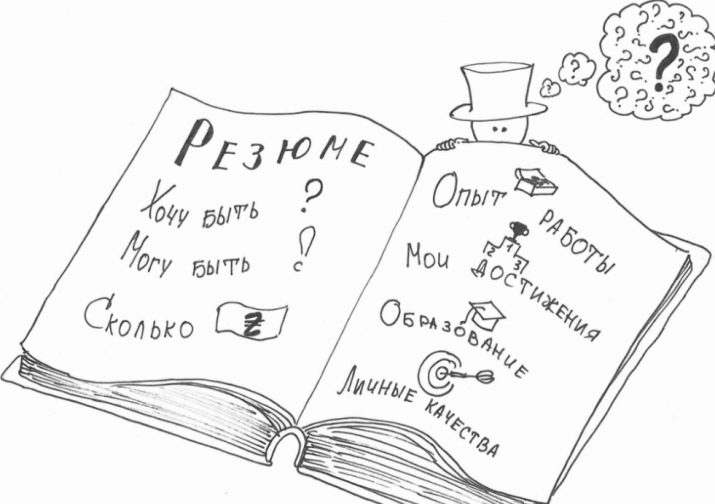 Резюме
Хочу быть ?
Могу быть !?
Сколько
Опыт работы
Мои достижения
2 1 3
Образование
Личные качества
? ? ?